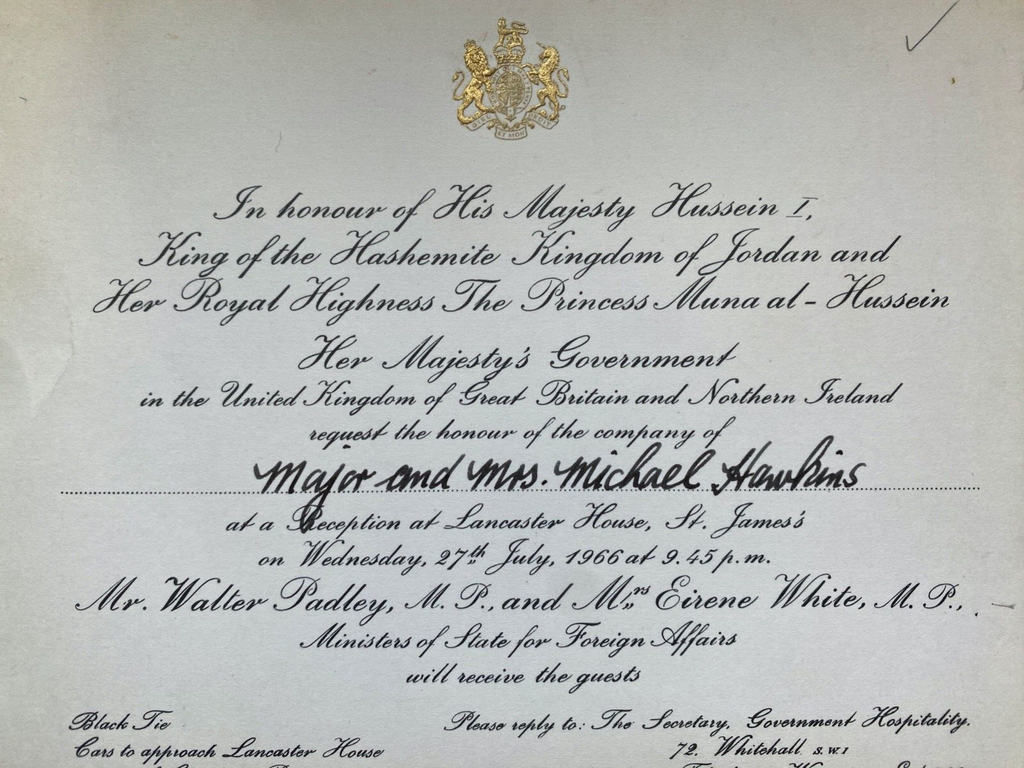 In honour of His Majesty Hussein I,
King of the Hashemite Kingdom of Jordan and
Her Royal Highness The Princess Muna al-Hussein
Her Majesty's Government
in the United Kingdom of Great Britain and Northern Ireland
request the honour of the company of
Major and Mrs. Michael Hawkins
at a Reception at Lancaster House, St. James's
on Wednesday, 27th July, 1966 at 9.45 p.m.
Mr. Walter Padley, M.P., and Mrs Eirene White, M.P.,
Ministers of State for Foreign Affairs
will receive the guests
Black Tie
Cars to approach Lancaster House
Please reply to: The Secretary, Government Hospitality.
72. Whitehall S.W.1